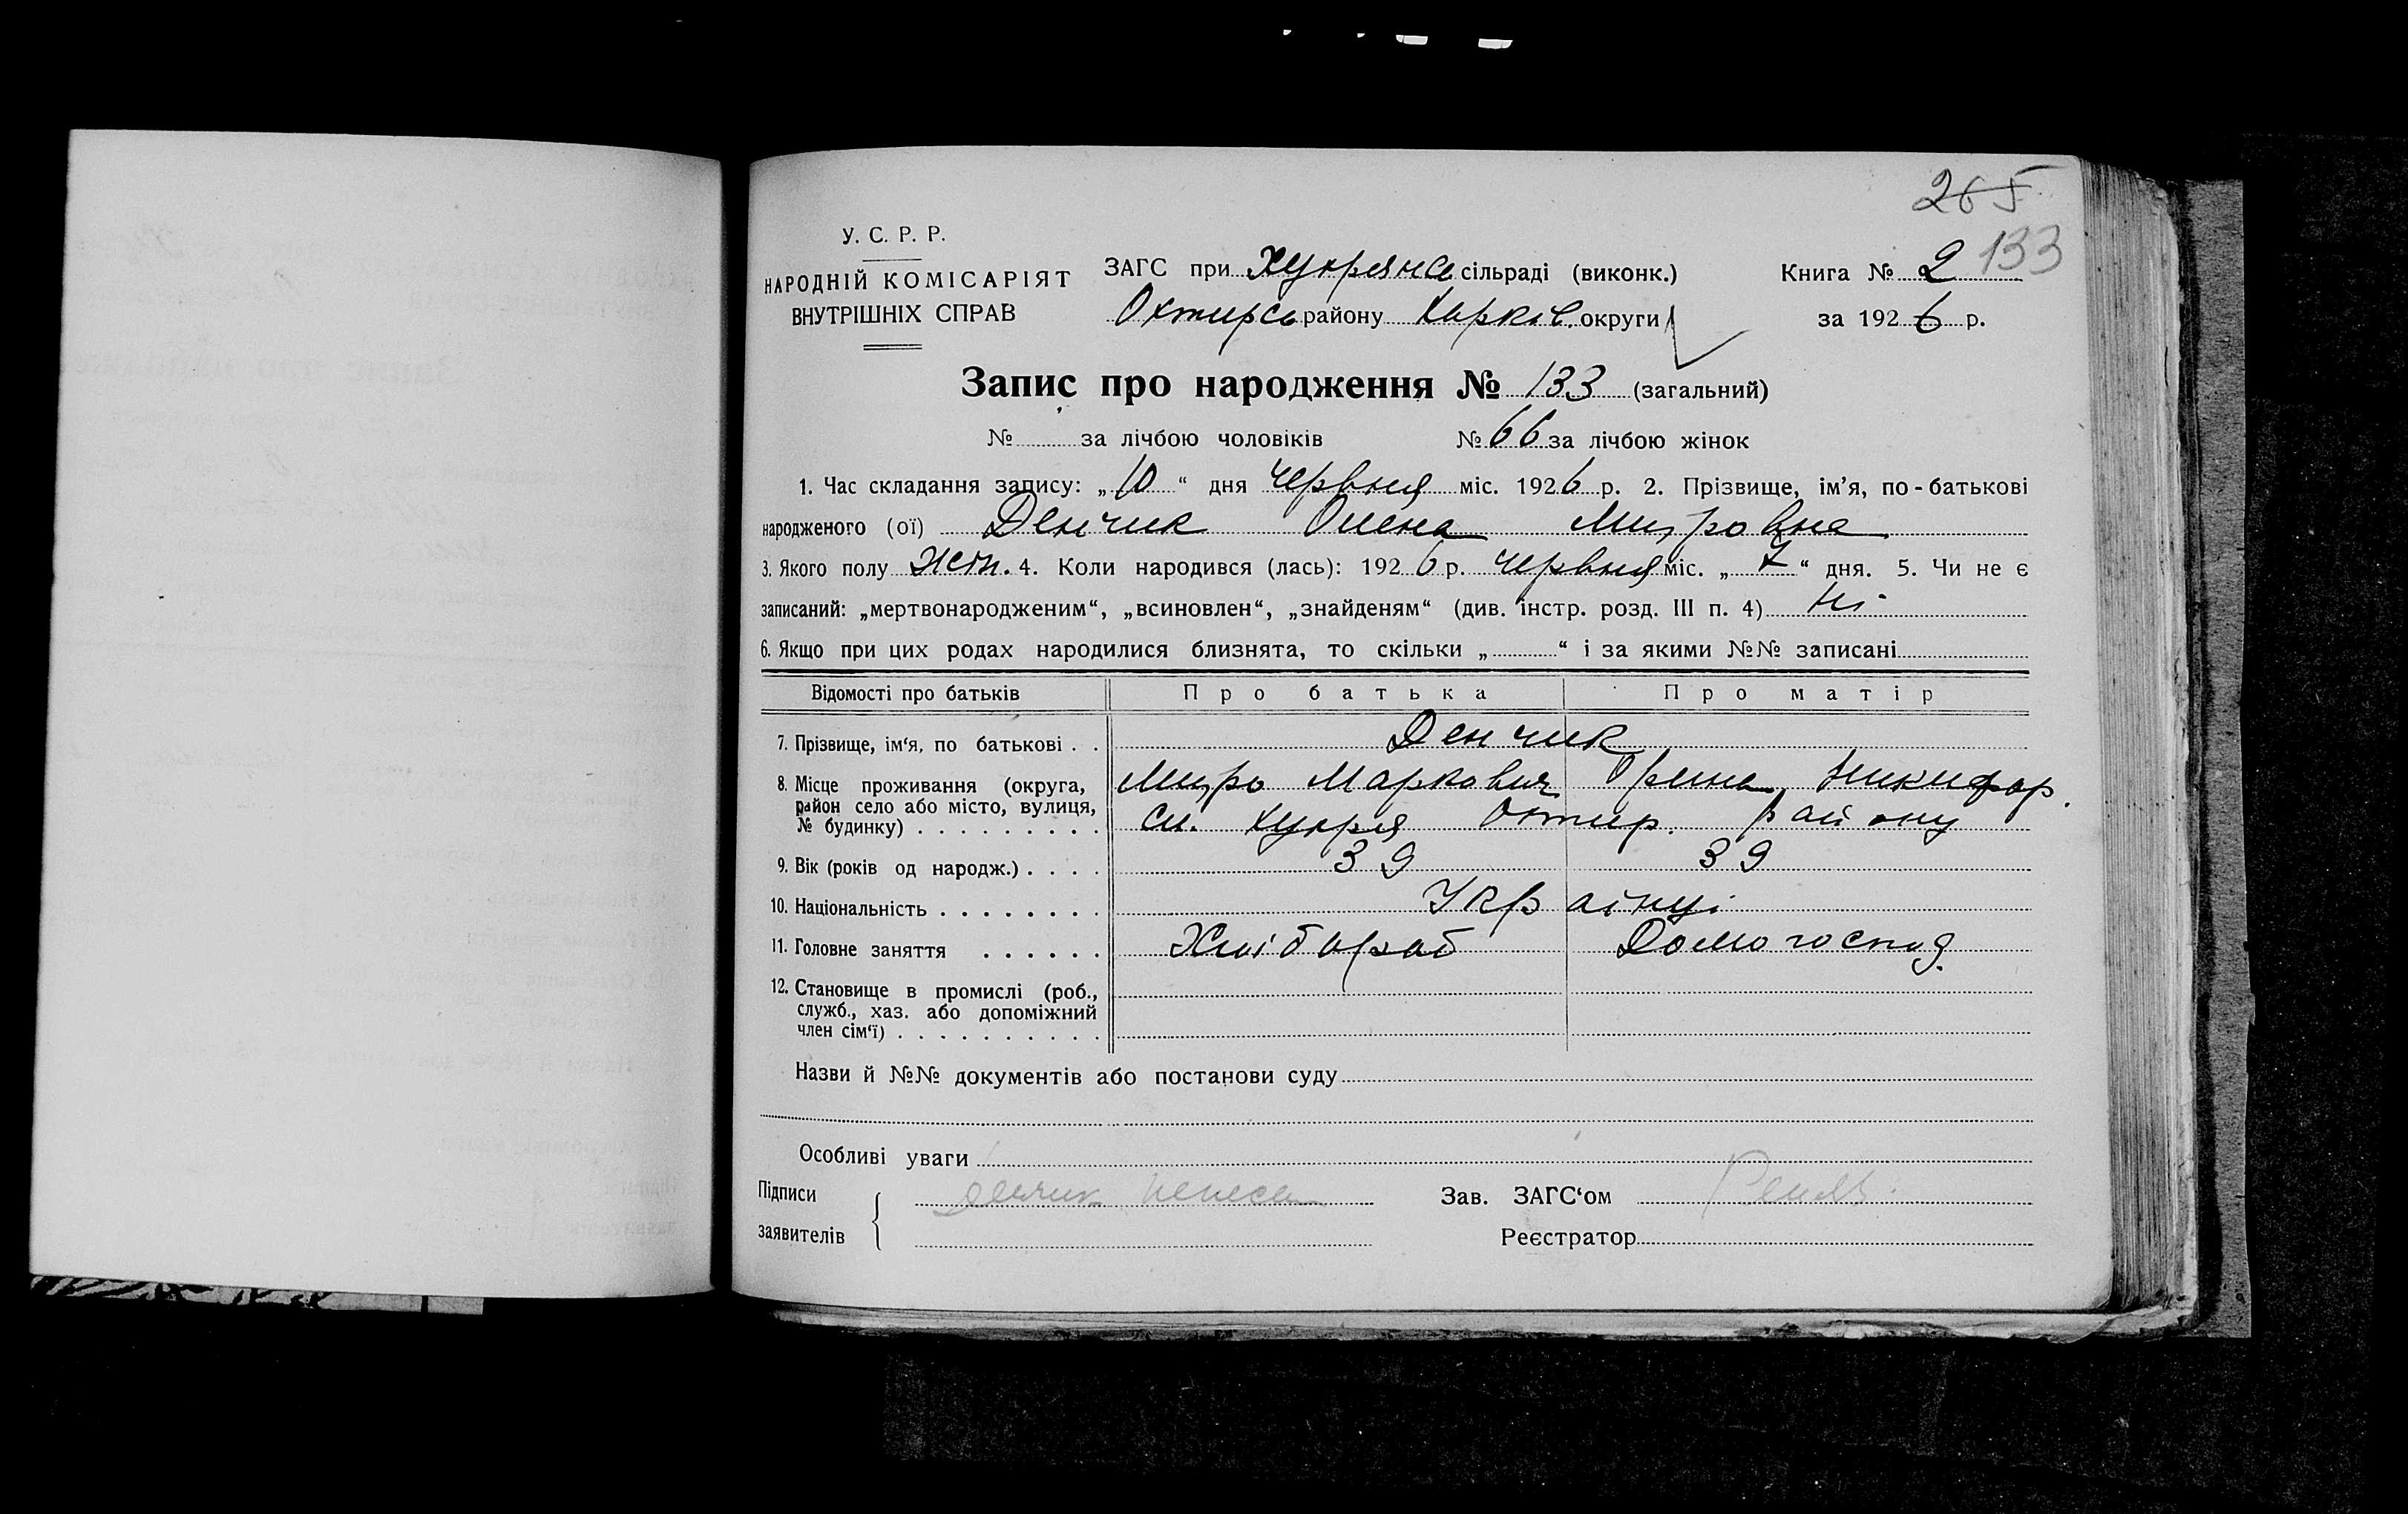 265
133
У. С. Р. Р.
НАРОДНІЙ КОМІСАРІЯТ
ВНУТРІШНІХ СПРАВ
ЗАГС при Хухрянс сільраді (виконк.)
Охтирсь району Харків. округи
Книга № 2
за 1926 р.
Запис про народження № 133 (загальний)
№ за лічбою чоловіків № 66 за лічбою жінок
1. Час складання запису: „10“ дня червня міс. 1926 р. 2. Прізвище, ім’я, по-батькові
народженого (ої) Денчик Олена Митровна
3. Якого полу жін. 4. Коли народився (лась): 1926 р. червня міс. „7“ дня. 5. Чи не є
записаний: „мертвонародженим“, „всиновлен“, „знайденям“ (див. інстр. розд. III п. 4) Ні
6. Якщо при цих родах народилися близнята, то скільки „ “ і за якими №№ записані
Відомості про батьків Про батька Про матір
7. Прізвище, ім‘я, по батькові . . Денчик
8. Місце проживання (округа, Митро Маркович Орина Никифор.
район село або місто, вулиця,
№ будинку) . . . . . . . . . сл. Хухря Охтир. району
9. Вік (років од народж.) . . . . 39 39
10. Національність . . . . . . . . Українці
11. Головне заняття . . . . . . Хлібороб Домогоспод.
12. Становище в промислі (роб.,
служб., хаз. або допоміжний
член сім‘ї) . . . . . . . . . .
Назви й №№ документів або постанови суду
Особливі уваги
Підписи Денчик
заявителів
Зав. ЗАГС‘ом
Реєстратор